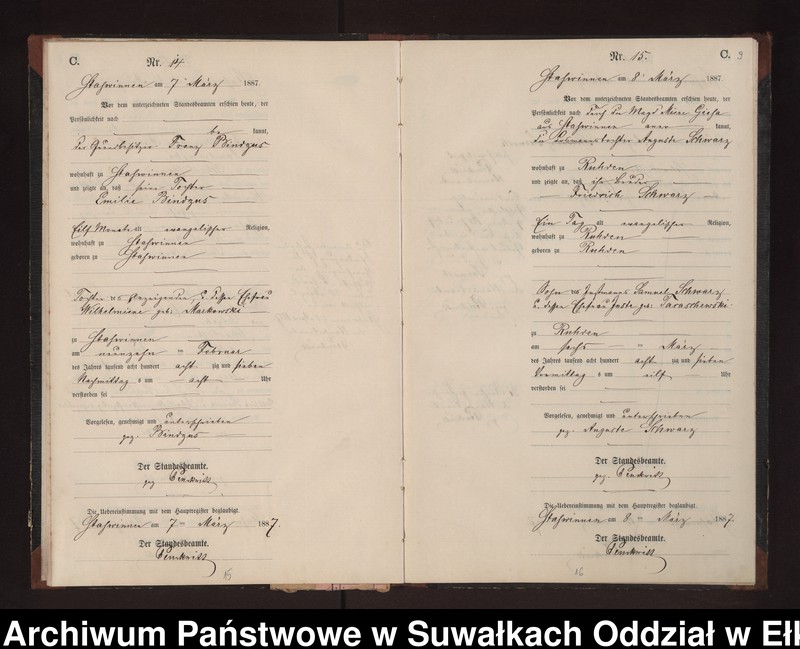 C.
Nr. 14.
Stahsvinnen am 7 März 1887.
Vor dem unterzeichneten Standesbeamten erschien heute, der
Persönlichkeit nach
be kannt,
der Grundbesitzer Franz Bindzus
wohnhaft zu Staßwinnen
und zeigte an, daß seine Tochter
Emilie Bindzus
Eilf Monate alt evangelischer Religion,
wohnhaft zu Staßwinnen
geboren zu Staßwinnen
Tochter des Anzeigenden, u. dessen Ehefrau
Wilhelmiene geb: Markowski
zu Staßwinnen
am neunzehn ten Februar
des Jahres tausend acht hundert acht zig und sieben
Nachmittag s um acht Uhr
verstorben sei
Vorgelesen, genehmigt und unterschrieben
gez. Bindzus
Der Standesbeamte.
gez
Die Uebereinstimmung mit dem Hauptregister beglaubigt.
Staßwinnen am 7 ten März 1887.
Der Standesbeamte.
15
Nr. 15.
C. 9
Staßwinnen am 8 März 1887.
Vor dem unterzeichneten Standesbeamten erschien heute, der
Persönlichkeit nach durch die Magd
aus Staßwinnen aner kannt,
die Auguste Schwarz
wohnhaft zu Ruhden
und zeigte an, daß ihr Bruder
Friedrich Schwarz
Ein Tag alt evangelischer Religion,
wohnhaft zu Ruhden
geboren zu Ruhden
Sohn des Instmanns Samuel Schwarz
u. dessen Ehefrau Juste geb: Taraschewski
zu Ruhden
am sechs ten März
des Jahres tausend acht hundert acht zig und sieben
Vormittag s um eilf Uhr
verstorben sei
Vorgelesen, genehmigt und unterschrieben
gez. Auguste Schwarz
Der Standesbeamte.
gez.
Die Uebereinstimmung mit dem Hauptregister beglaubigt.
Staßwinnen am 8 ten März 1887.
Der Standesbeamte.
16
Archiwum Państwowe w Suwałkach Oddział w Ełk